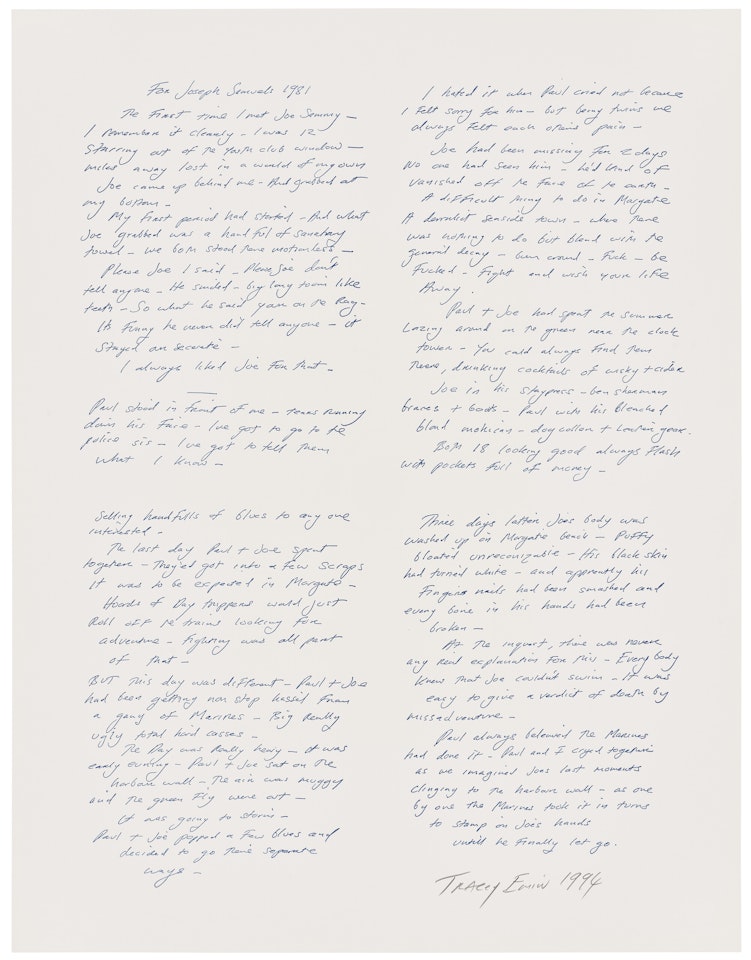 For Joseph Samuels 1981
The First time I met Joe Sammy –
I remember it clearly – I was 12
Starring out of the Youth club window –
miles away lost in a world of my own
Joe came up behind me – And grabbed at
my bottom –
My first period had started – And what
Joe grabbed was a handful of sanatary
towel – we both stood there motionless –
Please Joe I said – Please Joe don't
tell anyone – He smiled – big long tooth like
teeth – So what he said your on the Rag –
Its Funny he never did tell anyone – it
Stayed our secrate –
I always liked Joe For that –
Paul stood in front of me – tears running
down his face – Ive got to go to the
police sis – Ive got to tell them
what I know –
I hated it when Paul cried not because
I Felt sorry For him – but being twins we
always felt each others pain –
Joe had been missing For 2 days
No one had seen him – he'd kind of
vanished off the Face of the earth –
A difficult thing to do in Margate
A derelict seaside town – where there
was nothing to do but blend with the
general decay – bum around – Fuck – be
Fucked – Fight and wish your life
Away.
Paul + Joe had spent the summer
Lazing around on the green near the clock
tower – You could always find them
there, drinking cocktails of wisky + cider
Joe in his staypress – ben sherman
braces + boots – Paul with his bleached
blond mohican – dog collar + leather gear.
Both 18 looking good always flash
with pockets full of money –
Selling handfulls of blues to any one
intrested –
The last day Paul + Joe spent
together – They'd got into a few Scraps
It was to be expected in Margate –
Hoards of Day trippers would just
Roll off the trains looking for
adventure – fighting was all part
of that –
BUT this day was different – Paul + Joe
had been getting non stop hassel From
a gang of Marines – Big Really
ugly total hard casses –
The Day was Really heavy – it was
early evening – Paul + Joe sat on the
harbour wall – The air was muggy
and the green Fly were out –
It was going to storm –
Paul + Joe popped a Few blues and
decided to go there separate
ways –
Three days latter Joes body was
washed up on Margate beach – Puffy
bloated unreconizable – His black skin
had turned white – and apprently his
Finger nails had been smashed and
every bone in his hands had been
broken –
At the inquest, there was never
any real explanation For this – Everybody
knew that Joe couldn't swim – It was
easy to give a verdict of death by
missadventure –
Paul always beleived the Marines
had done it – Paul and I cryed together
as we imagined Joes last moments
clinging to the harbour wall – as one
by one the Marines took it in turns
to stamp on Joes hands
untill he finally let go.
Tracey Emin 1994